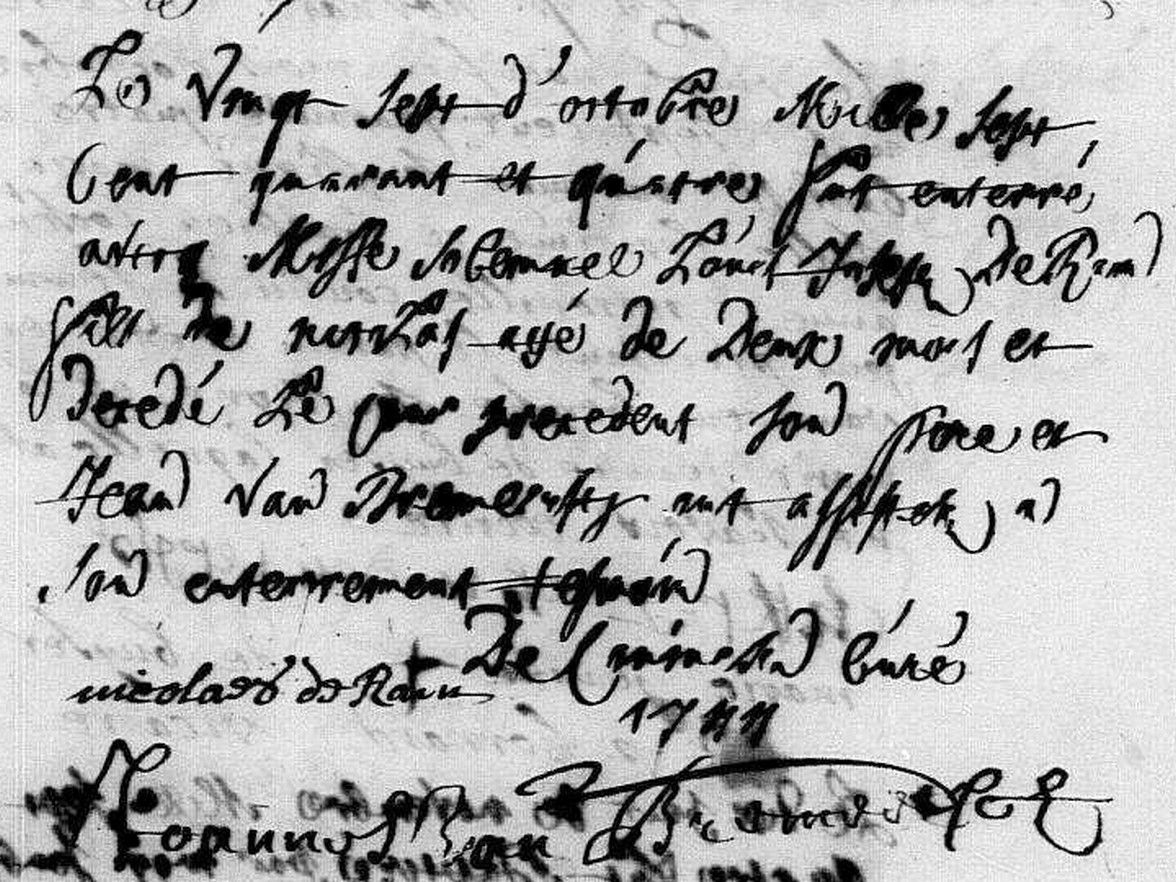 Le vingt sept d'octobre mille sept
cent quarant et quatre fut enterré
avecq Messe solemnel Louis Joseph de Ram
fils de nicolas agé de deux mois et
decedé le jour precedent son pere et
Jean van ont assistez a
son enterrement tesmoin
De curé
nicolaes de Ram
1744
Joannes Van